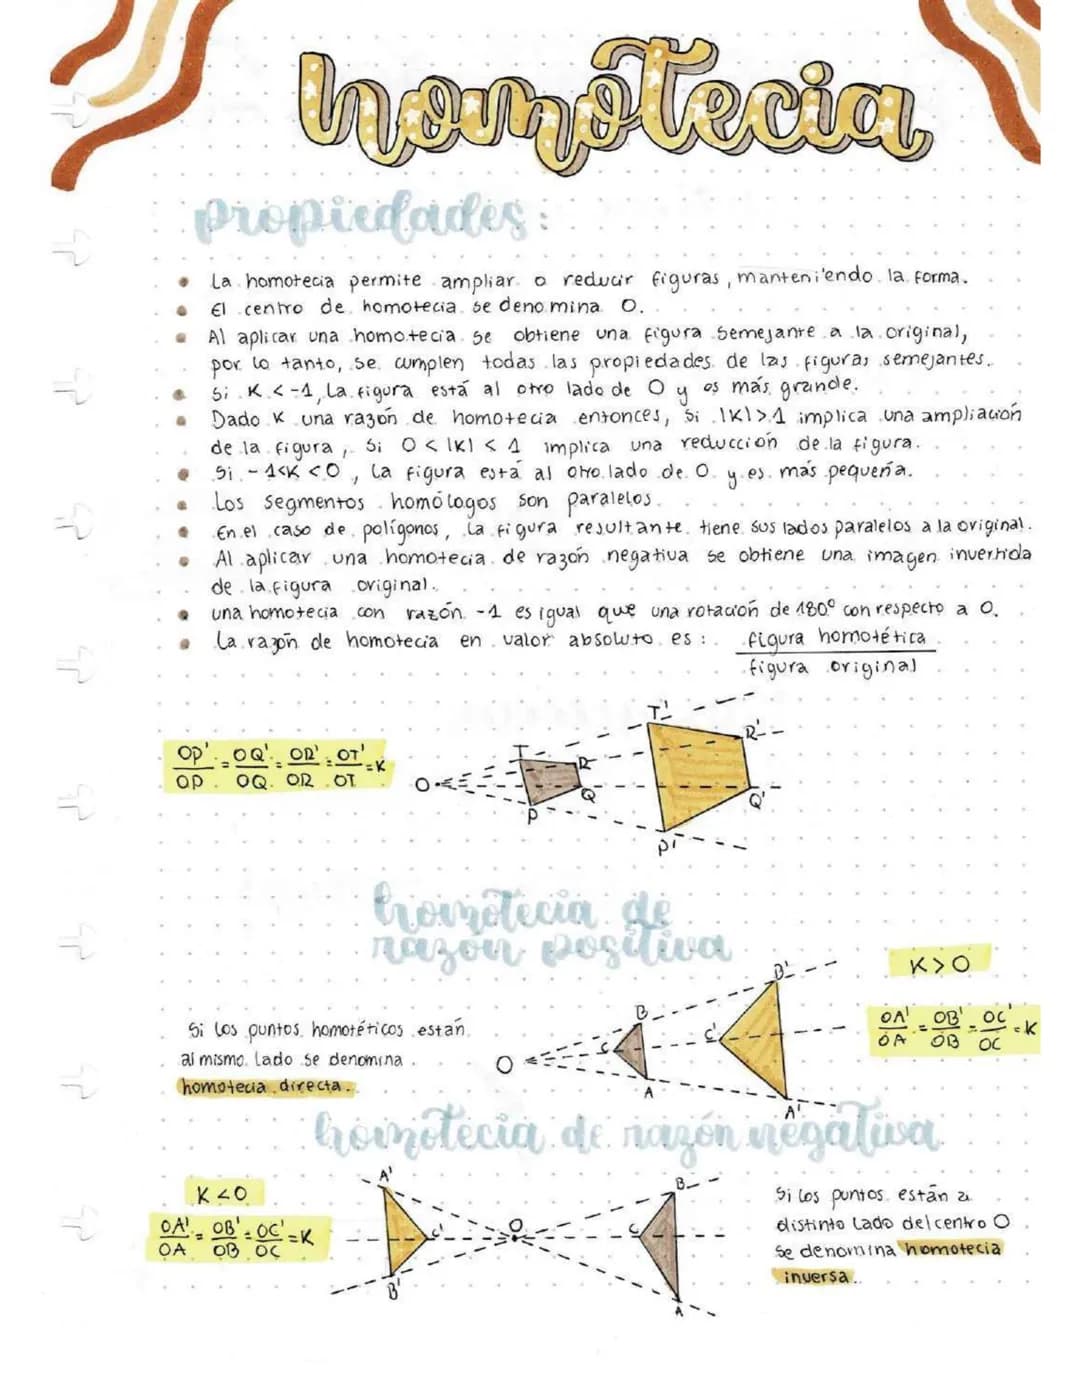 homotecia
propiedades:
La homotecia permite ampliar o reducir figuras, manteniendo la forma.
El centro de homotecia se denomina O.
Al aplicar una homotecia se obtiene una figura semejante a la original,
por lo tanto, se cumplen todas las propiedades de las figuras semejantes.
Si K < -1, La figura está al otro lado de O y es más grande.
Dado K una razón de homotecia entonces, si |K| > 1 implica una ampliación
de la figura, Si 0 < |K| < 1 implica una reducción de la figura.
Si -1<K<0, La figura está al otro lado de O y es más pequeña.
Los segmentos homólogos son paralelos.
En el caso de polígonos, La figura resultante tiene sus lados paralelos a la original.
Al aplicar una homotecia de razón negativa se obtiene una imagen invertida
de la figura original.
una homotecia con razón -1 es igual que una rotación de 180° con respecto a O.
La razón de homotecia en valor absoluto es: figura homotética
figura original
T'
R'
OP' = OQ' = OR' = OT' = K
OP OQ OR OT
O
T
R
Q
P
Q'
P'
homotecia de
razón positiva
K>O
B'
Si los puntos homotéticos están
al mismo lado se denomina
homotecia directa.
B
C'
C
O
A
A'
OA' = OB' = OC' = K
OA OB OC
homotecia de razón negativa
K<0
OA' = OB' = OC' = K
OA OB OC
A'
B
C'
O
C
B'
A
Si los puntos están a
distinto lado del centro O
se denomina homotecia
inversa.